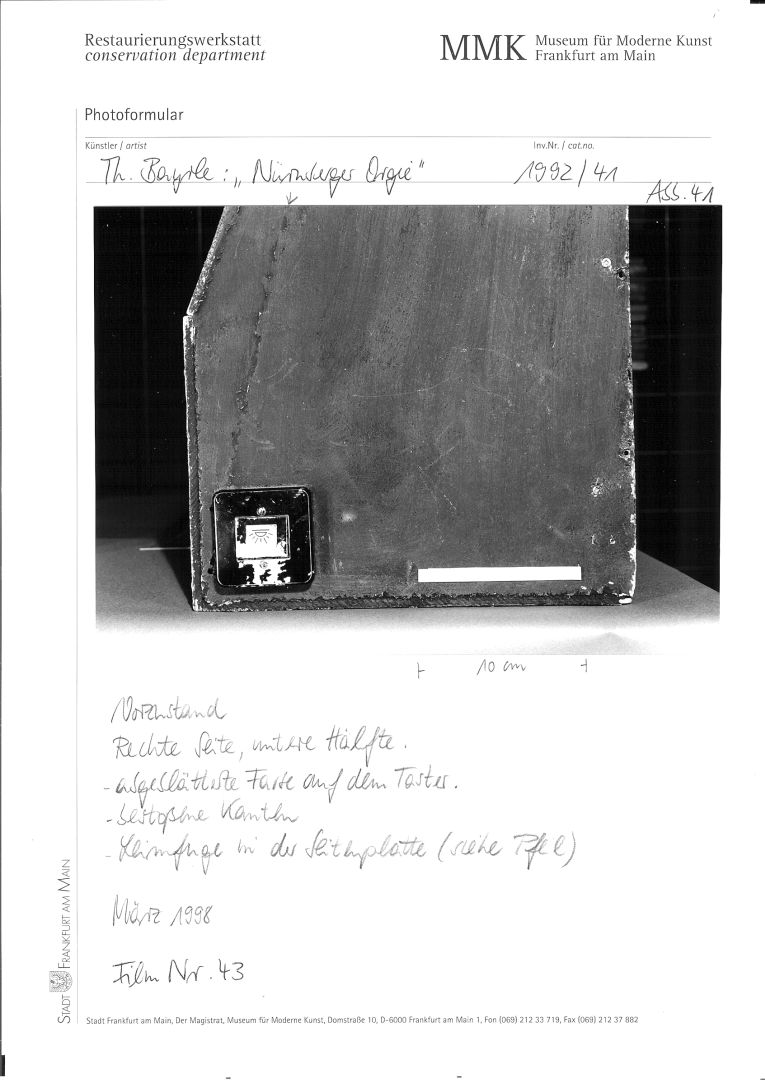 Restaurierungswerkstatt
conservation department
MMK Museum für Moderne Kunst
Frankfurt am Main
Photoformular
Künstler / artist
Inv.Nr. / cat.no.
Th. Bayrle: „Nürnberger Orgie"
1992/41
Ass. 41
10 cm
Vorzustand
Rechte Seite, untere Hälfte.
- abgeblätterte Farbe auf dem Taster.
- bestoßene Kanten
- Leimfuge in der Seitenplatte (siehe Pfeil)
März 1998
Film Nr. 43
STADT FRANKFURT AM MAIN
Stadt Frankfurt am Main, Der Magistrat, Museum für Moderne Kunst, Domstraße 10, D-6000 Frankfurt am Main 1, Fon (069) 212 33 719, Fax (069) 212 37 882